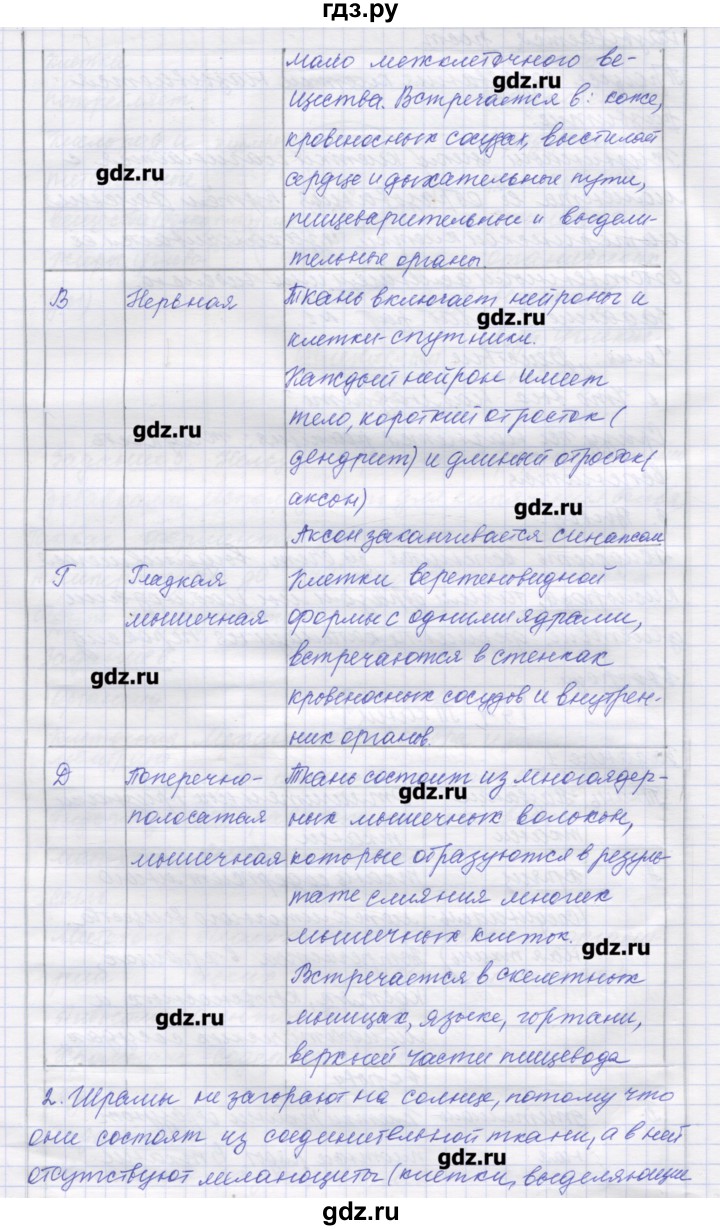 гдз.ру
мало межклеточного ве-
щества. Встречается в: коже,
кровеносных сосудах, выстилает
сердце и дыхательные пути,
пищеварительные и выдели-
тельные органы.
В Нервная Ткань включает нейроны и
клетки-спутники.
Каждый нейрон имеет
тело, короткий отросток (
дендрит) и длиный отросток (
аксон)
Аксон заканчивается синапсом
Г Гладкая Клетки веретеновидной
мышечная формы с одними ядрами,
встречаются в стенках
кровеносных сосудов и внутрен-
них органов.
Д Поперечно- Ткань состоит из многоядер-
полосатая ных мышечных волокон,
мышечная которые образуются в резуль-
тате слияния многих
мышечных клеток.
Встречается в скелетных
мышцах, языке, гортани,
верхней части пищевода
2. Шрамы не загорают на солнце, потому что
они состоят из соединительной ткани, а в ней
отсутствуют меланоциты (клетки, выделяющие
gdz.ru
gdz.ru
gdz.ru
gdz.ru
gdz.ru
gdz.ru
gdz.ru
gdz.ru
gdz.ru
gdz.ru
гдз.ру